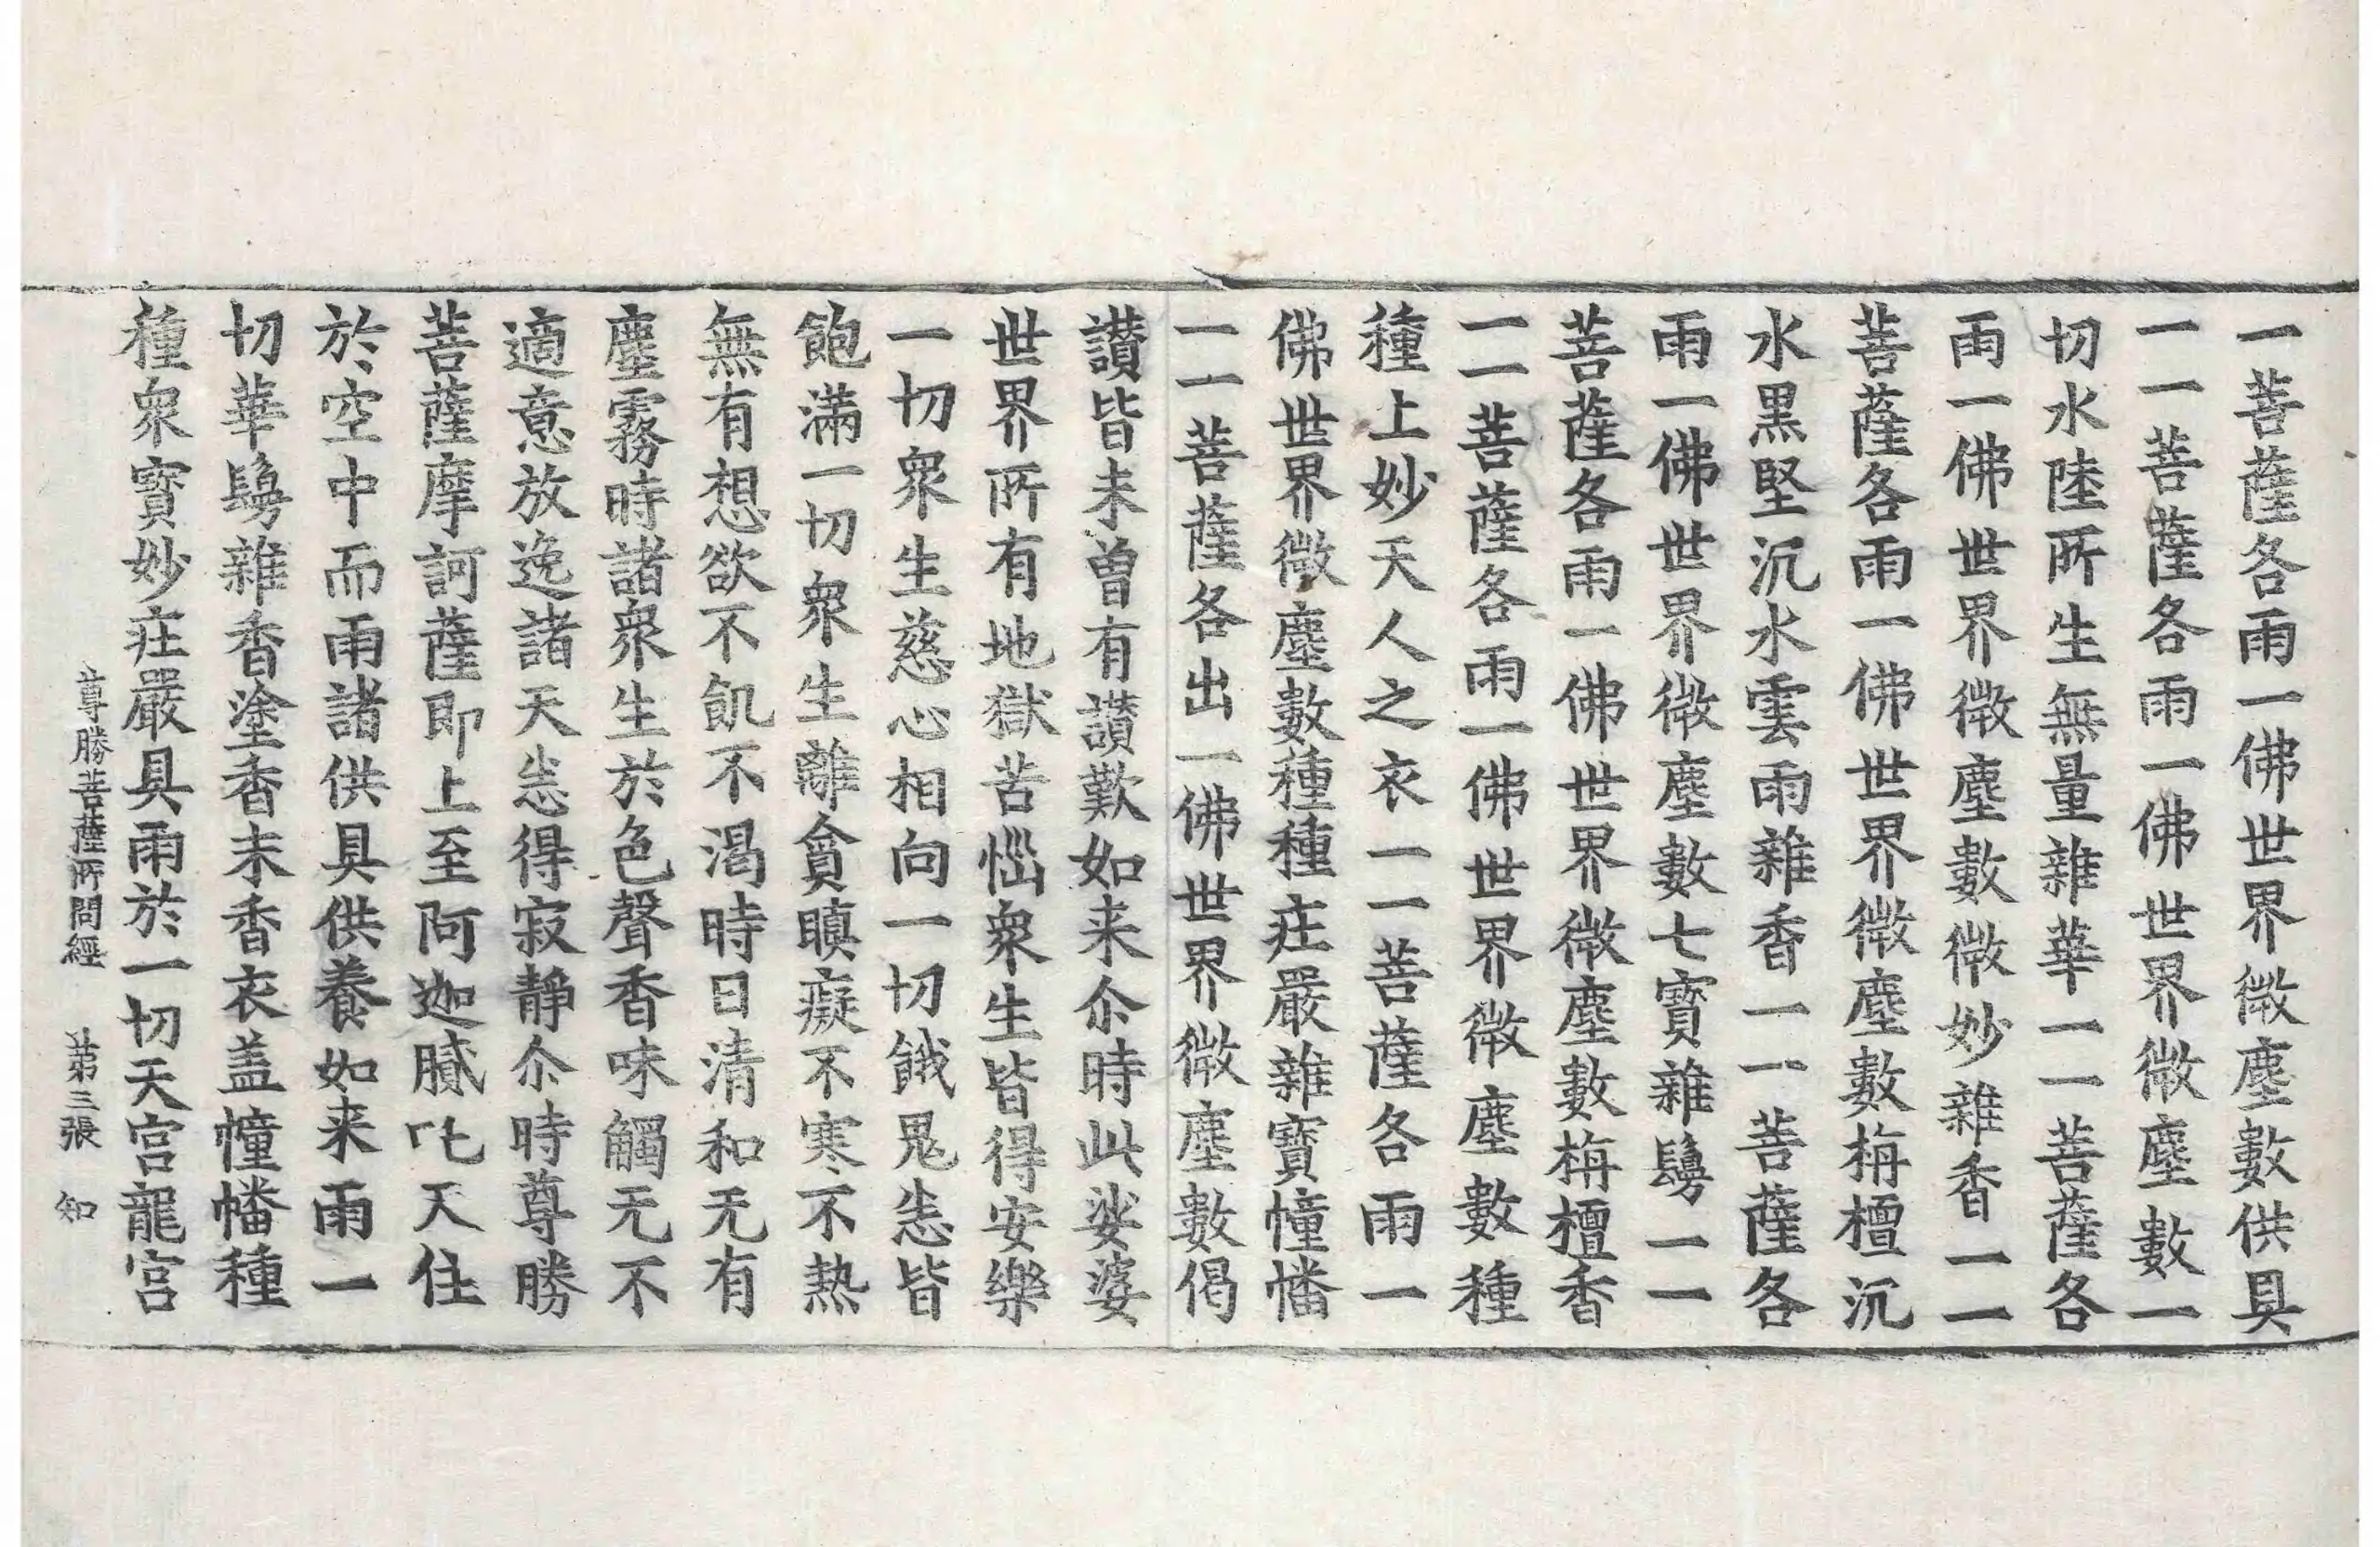 一菩薩各雨一佛世界微塵數供具
一一菩薩各雨一佛世界微塵數一
切水陸所生無量雜華一一菩薩各
雨一佛世界微塵數微妙雜香一一
菩薩各雨一佛世界微塵數栴檀沉
水黑堅沉水雲雨雜香一一菩薩各
雨一佛世界微塵數七寶雜鬘一一
菩薩各雨一佛世界微塵數栴檀香
一一菩薩各雨一佛世界微塵數種
種上妙天人之衣一一菩薩各雨一
佛世界微塵數種種庄嚴雜寶幢幡
一一菩薩各出一佛世界微塵數偈
讃皆未曽有讃歎如来尒時此娑婆
世界所有地獄苦惱衆生皆得安樂
一切衆生慈心相向一切餓鬼悉皆
飽滿一切衆生離貪瞋癡不寒不熱
無有想欲不飢不渴時日清和无有
塵霧時諸衆生於色聲香味觸无不
適意放逸諸天悉得寂靜尒時尊勝
菩薩摩訶薩即上至阿迦膩吒天住
於空中而雨諸供具供養如来雨一
切華鬘雜香塗香末香衣盖幢幡種
種衆寶妙庄嚴具雨於一切天宮龍宮
尊勝菩薩所問經 第三張 知